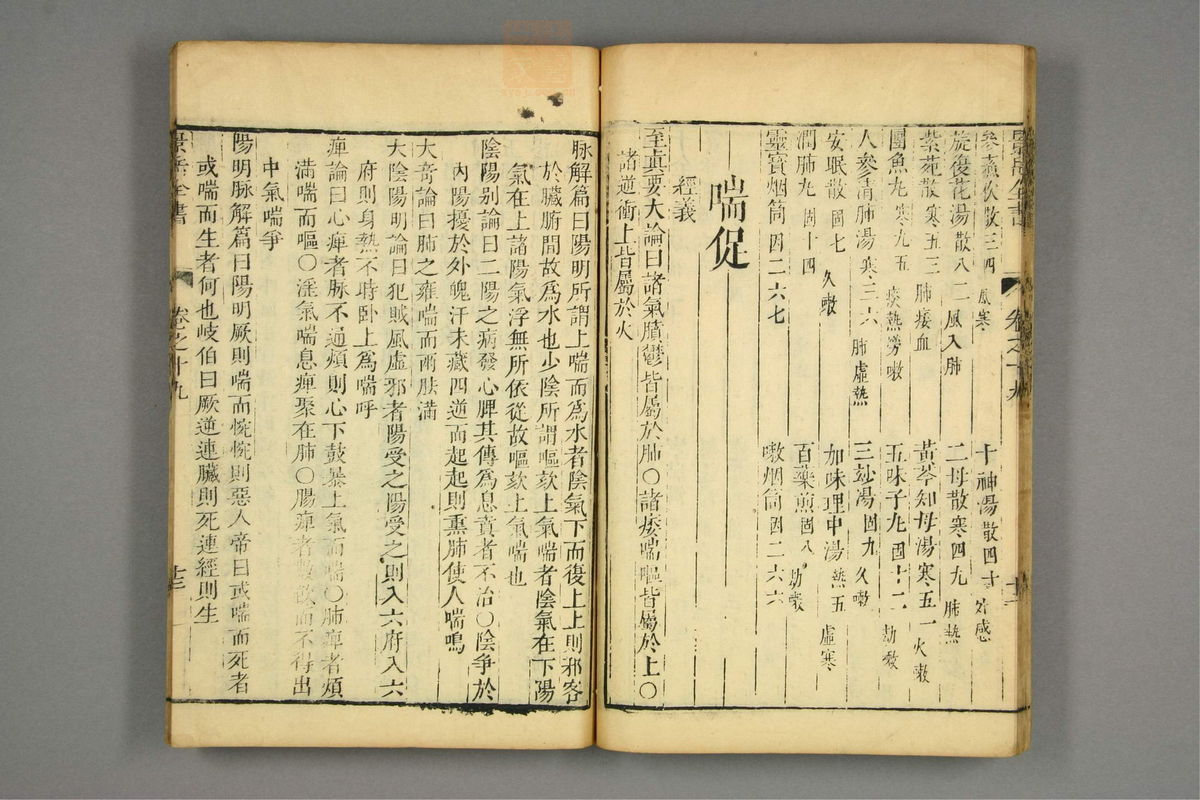 景岳全書 卷之十九
參蘇飲散三四 風寒
十神湯散四十 外感
旋復花湯散八二 風入肺
二母散寒四九 肺熱
紫菀散寒五三 肺痿血
黃芩知母湯寒五一 火嗽
團魚丸寒九五 痰熱勞嗽
五味子丸固十二 劫嗽
人參清肺湯寒三六 肺虛熱
三妙湯固九 久嗽
安眠散固七 久嗽
加味理中湯熱五 虛寒
潤肺丸固十四
百藥煎固八 劫嗽
靈寶烟筒因二六七
嗽烟筒因二六六
喘促
經義
至眞要大論曰諸氣膹鬱皆屬於肺○諸痿喘嘔皆屬於上○
諸逆衝上皆屬於火
脉解篇曰陽明所謂上喘而爲水者陰氣下而後上上則邪客
於臟腑間故爲水也少陰所謂嘔欬上氣喘者陰氣在下陽
氣在上諸陽氣浮無所依從故嘔欬上氣喘也
陰陽别論曰二陽之病發心脾其傳爲息賁者不治○陰爭於
內陽擾於外魄汗未藏四逆而起起則熏肺使人喘鳴
大奇論曰肺之雍喘而兩胠滿
大陰陽明論曰犯賊風虛邪者陽受之陽受之則入六府入六
府則身熱不時卧上爲喘呼
痺論曰心痺者脉不通煩則心下鼓暴上氣而喘○肺痺者煩
滿喘而嘔○淫氣喘息痺聚在肺○腸痺者數飲而不得出
中氣喘爭
陽明脉解篇曰陽明厥則喘而惋惋則惡人帝曰或喘而死者
或喘而生者何也岐伯曰厥逆連臟則死連經則生
景岳全書 卷之十九